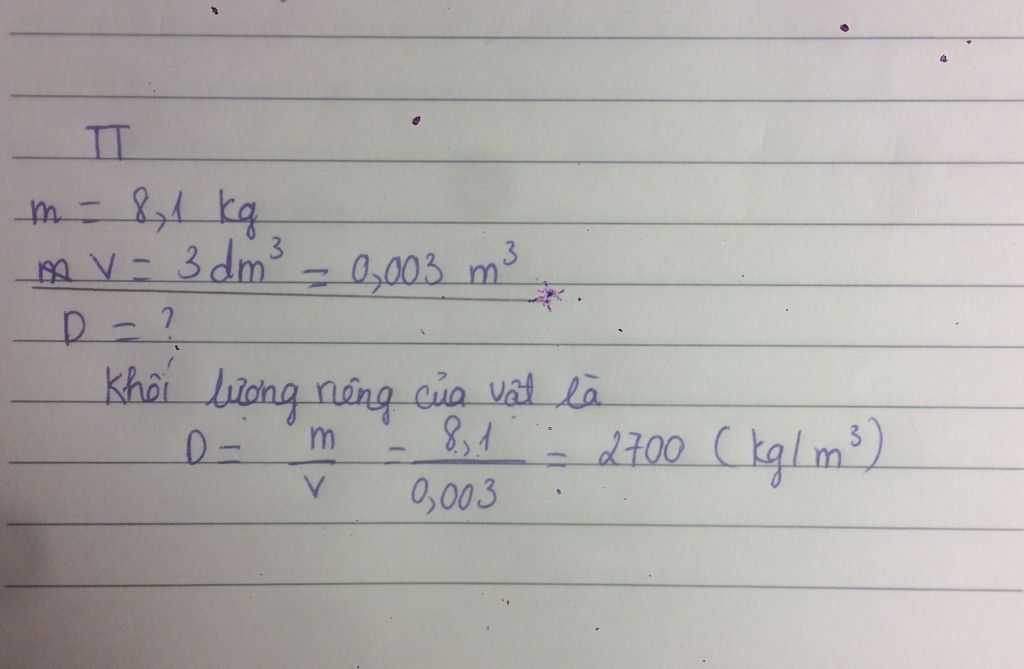 TT
m = 8,1 kg
m V = 3 dm³ = 0,003 m³
D = ?
Khối lượng riêng của vật là
D = m/V = 8,1/0,003 = 2700 (kg/m³)